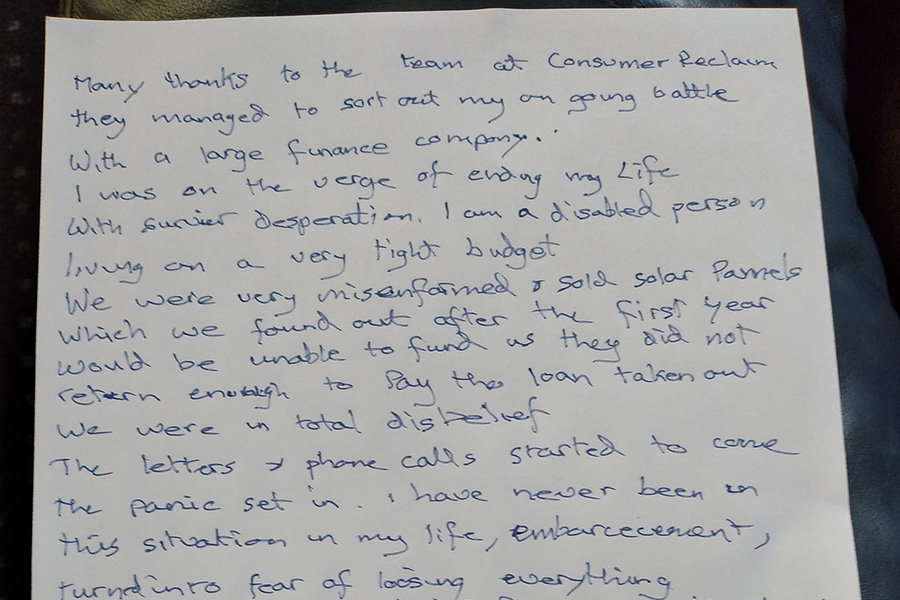 Many thanks to the team at Consumer Reclaim
they managed to sort out my on going battle
With a large finance company.
I was on the verge of ending my Life
With survier desperation. I am a disabled person
living on a very tight budget
We were very misenformed & sold solar Pamels
which we found out after the first year
would be unable to fund us they did not
return enough to Pay the loan taken out
We were in total disbelief
The letters & phone calls started to come
the panic set in. i have never been in
this situation in my life, embarcecement,
turned into fear of loosing everything